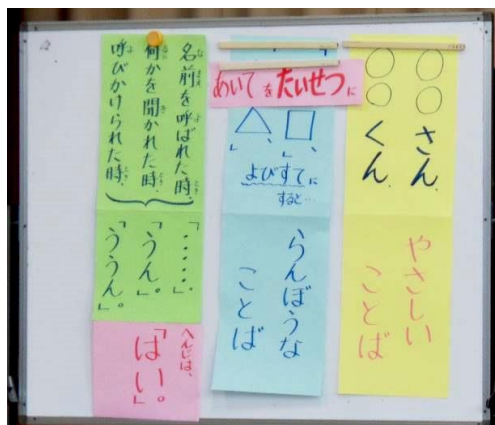 あいてをたいせつに
○○さん、
○○くん、
やさしい
ことば
「□、」
「△、」
よびすてに
すると…
らんぼうな
ことば
名前を呼ばれた時、
何かを聞かれた時、
呼びかけられた時、
「・・・・・。」
「うん。」
「ううん。」
へんじは、
「はい。」